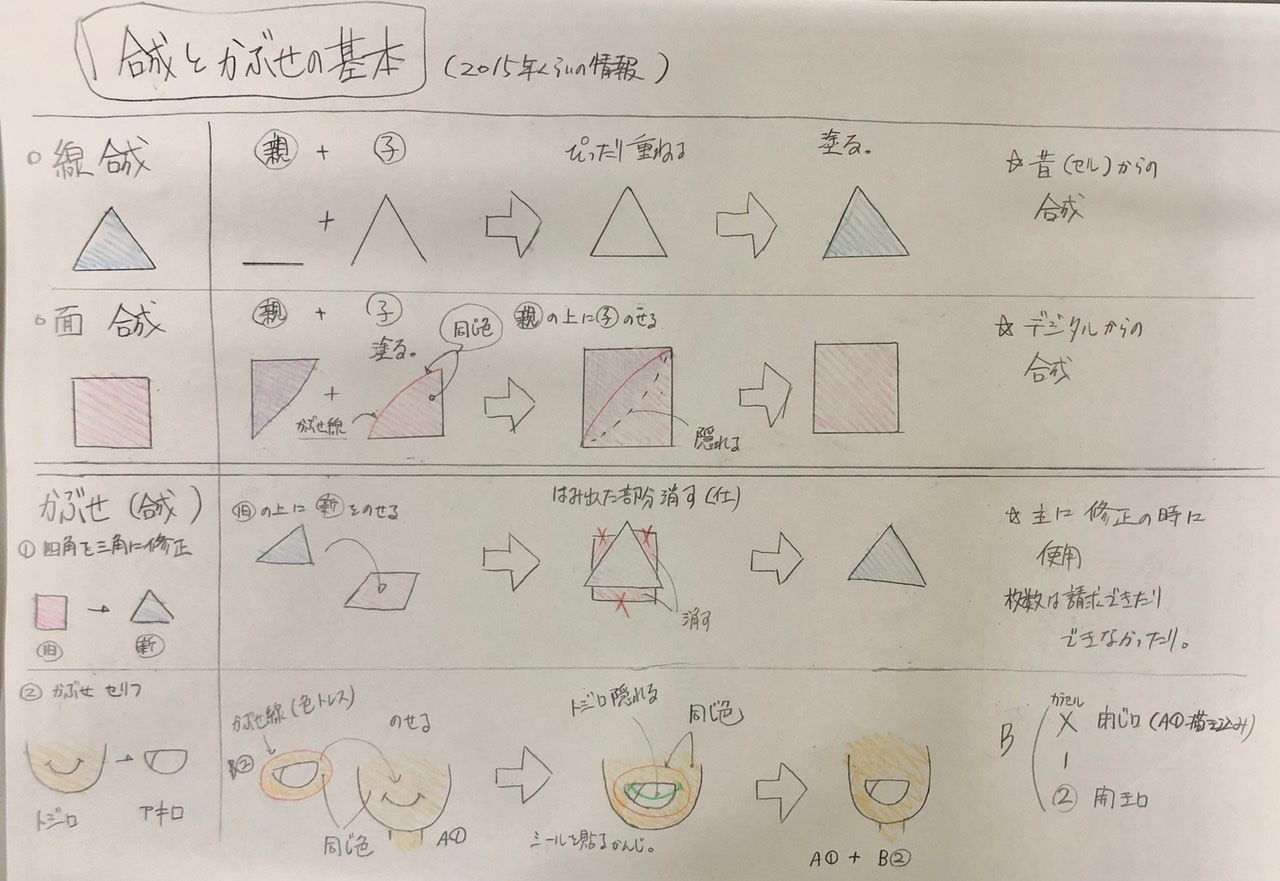 合成とかぶせの基本 (2015年くらいの情報)
○線合成
親 + 子
ぴったり重ねる
塗る。
+
☆昔(セル)からの
合成
○面合成
親 + 子
塗る。
同じ色
親の上に子のせる
+
かぶせ線
隠れる
☆デジタルからの
合成
かぶせ(合成)
①四角を三角に修正
旧
新
旧の上に新をのせる
はみ出た部分消す(仕)
消す
☆主に修正の時に
使用
枚数は請求できたり
できなかったり。
②かぶせセリフ
トジ口
アキ口
かぶせ線(色トレス)
のせる
B②
同じ色
A①
トジ口隠れる
同じ色
シールを貼るかんじ。
A① + B②
B
カラセル
× 閉じ口(A①描き込み)
|
② 開き口